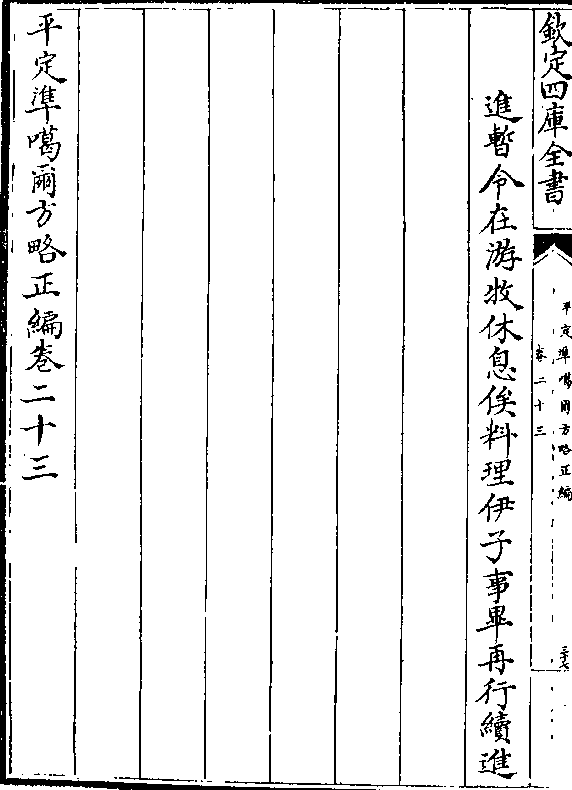 欽定四庫全書
平定準噶爾方略正編
卷二十三
三十六
進暫令在游牧休息俟料理伊子事畢再行續進
平定準噶爾方略正編卷二十三